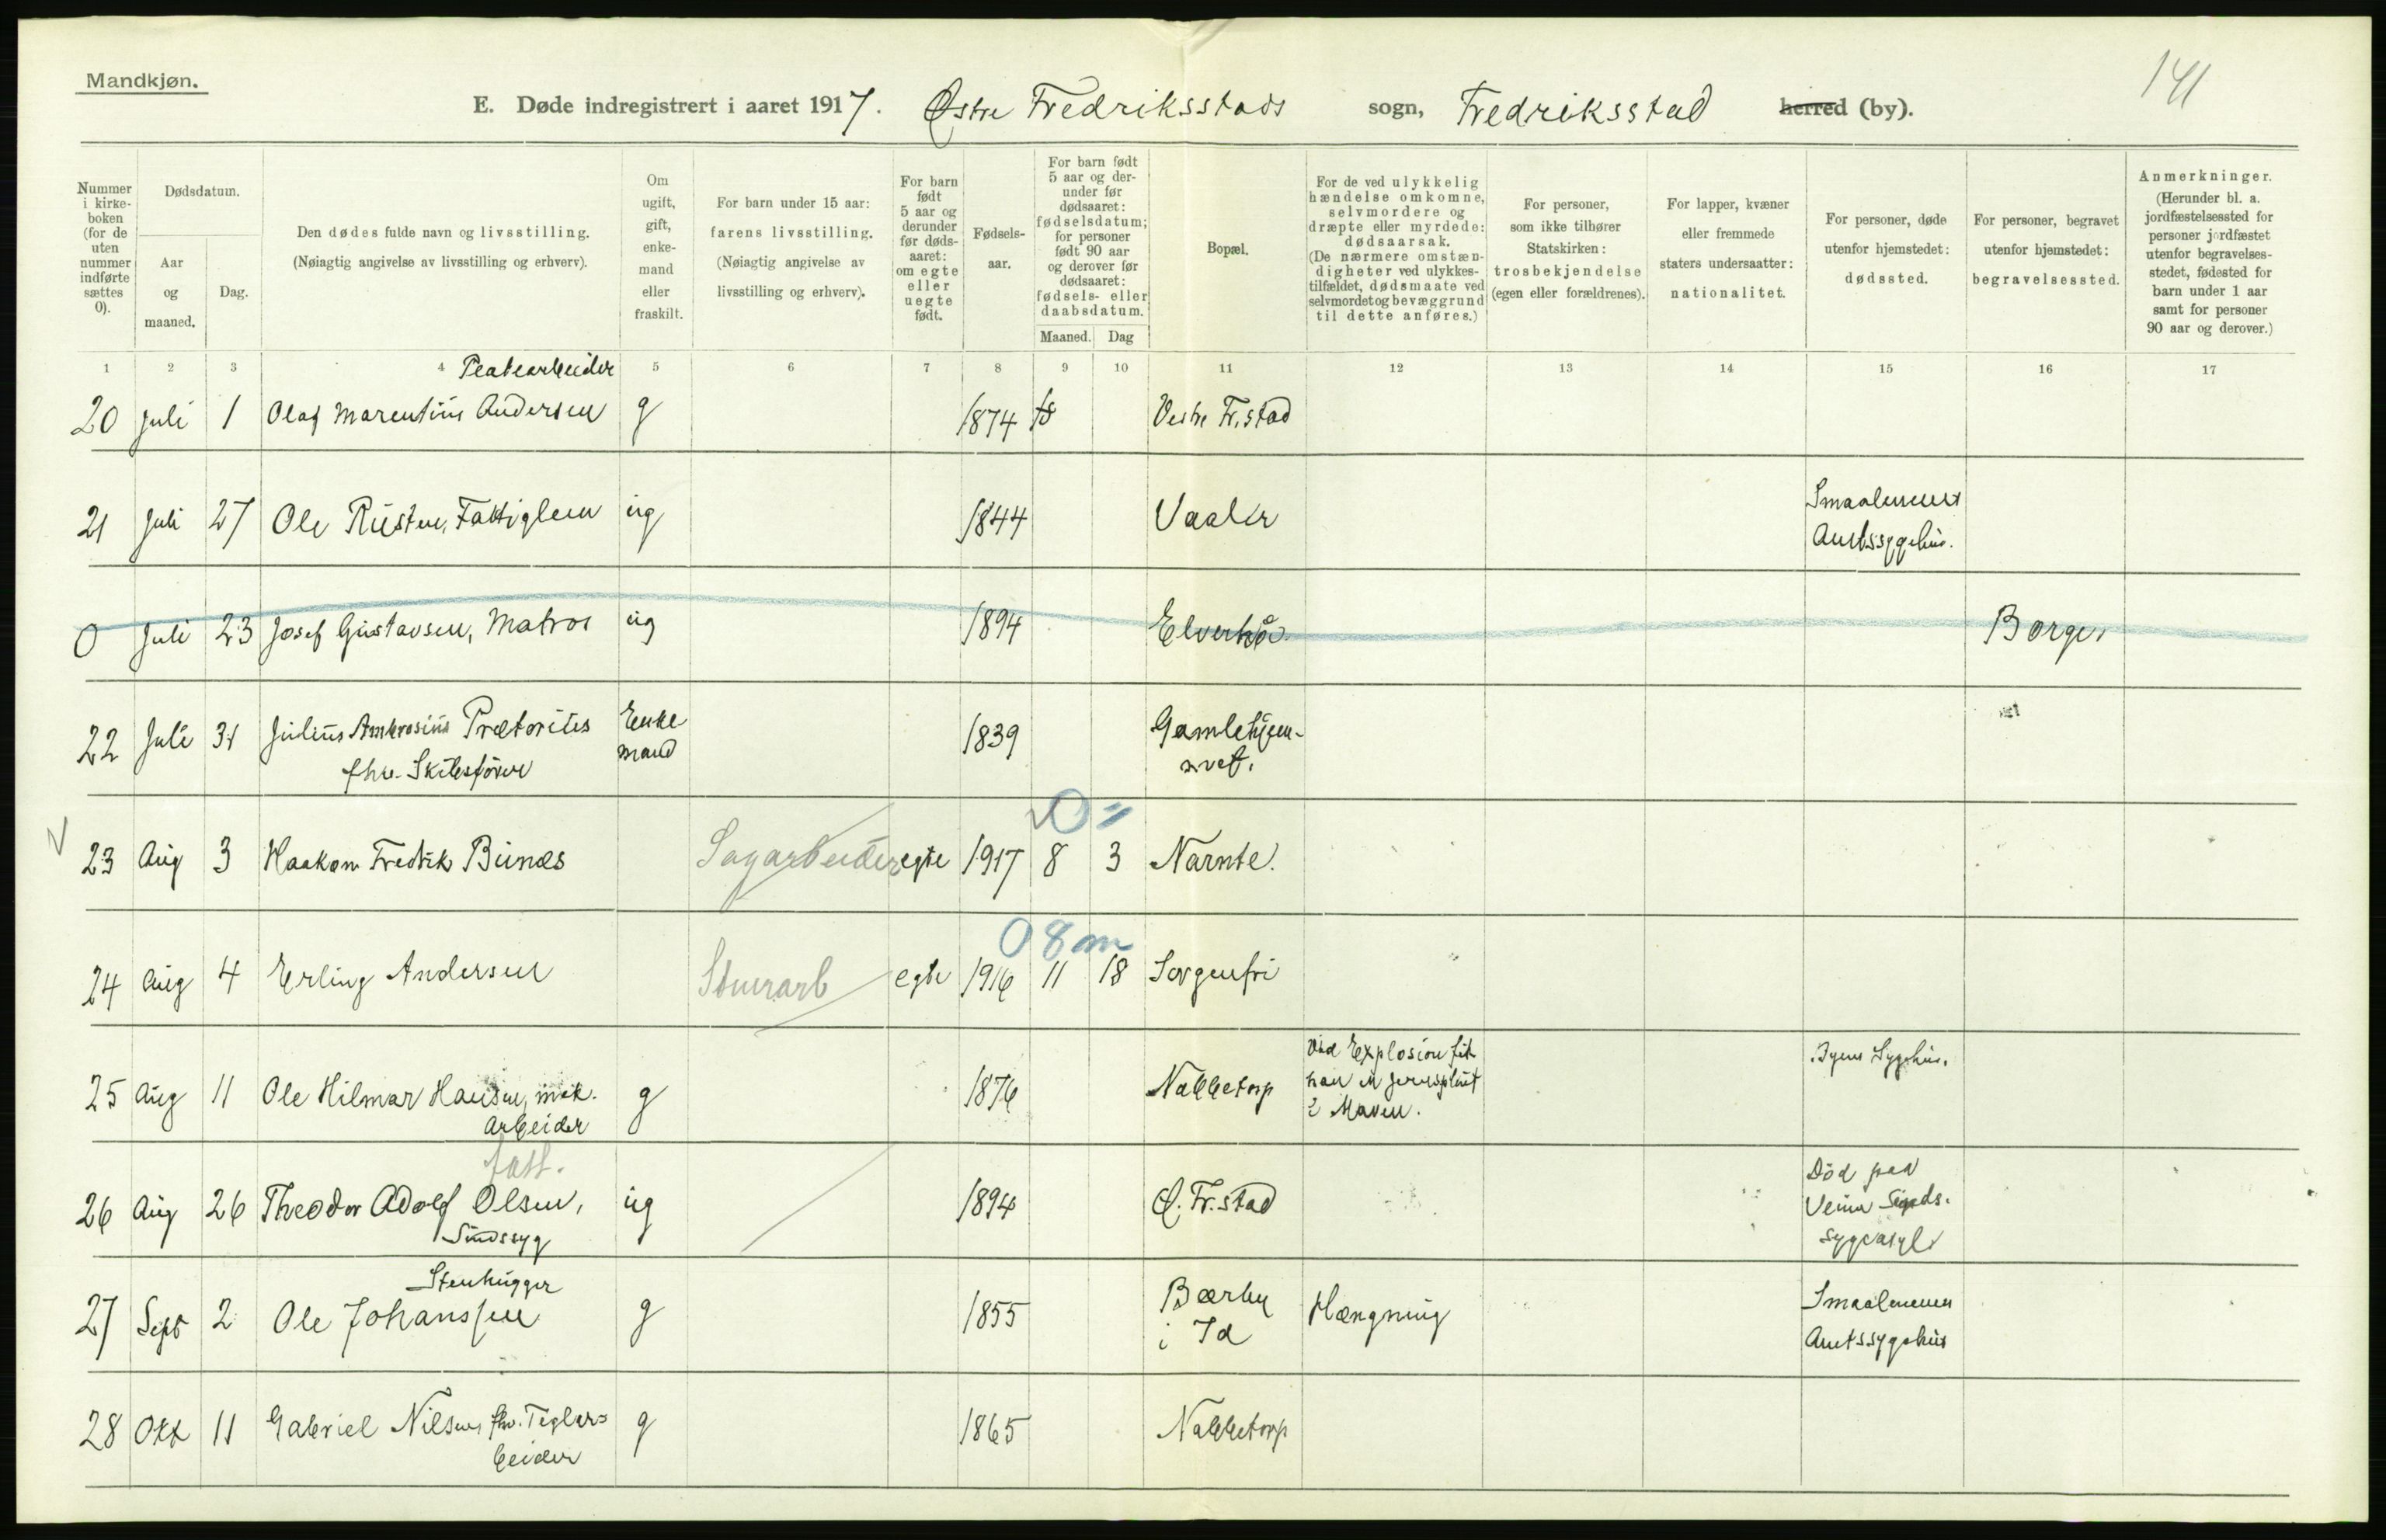 Mandkjøn.
141
E. Døde indregistrert i aaret 1917. Østre Fredriksstads sogn, Fredriksstad herred (by).
Nummer i kirke-boken (for de uten nummer indførte sættes 0).
Dødsdatum.
Aar og maaned.
Dag.
Den dødes fulde navn og livsstilling.
(Nøiagtig angivelse av livsstilling og erhverv).
Om ugift, gift, enke-mand eller fraskilt.
For barn under 15 aar: farens livsstilling.
(Nøiagtig angivelse av livsstilling og erhverv).
For barn født 5 aar og derunder før døds-aaret: om egte eller uegte født.
Fødsels-aar.
For barn født 5 aar og der-under før dødsaaret: fødselsdatum; for personer født 90 aar og derover før dødsaaret: fødsels- eller daabsdatum.
Maaned. Dag
Bopæl.
For de ved ulykkelig hændelse omkomne, selvmordere og dræpte eller myrdede: dødsaarsak.
(De nærmere omstæn-digheter ved ulykkes-tilfældet, dødsmaate ved selvmordet og bevæggrund til dette anføres.)
For personer, som ikke tilhører Statskirken: trosbekjendelse (egen eller forældrenes).
For lapper, kvæner eller fremmede staters undersaatter: nationalitet.
For personer, døde utenfor hjemstedet: dødssted.
For personer, begravet utenfor hjemstedet: begravelsessted.
Anmerkninger.
(Herunder bl. a. jordfæstelsessted for personer jordfæstet utenfor begravelses-stedet, fødested for barn under 1 aar samt for personer 90 aar og derover.)
1 2 3 4 5 6 7 8 9 10 11 12 13 14 15 16 17
20 Juli 1 Olaf Marentius Andersen g 1874 Vestre Fr.stad
21 Juli 27 Ole Rusten, Fattiglem ug 1844 Vaaler Smaalenenes
Amtssygehus.
0 Juli 23 Josef Gustavsen, Matros ug 1894 Elverhøi Borge
22 Juli 31 Julius Ambrosius Prætorius Enke 1839 Gamlehjem-
fhv. Skibsfører mand met.
0
23 Aug 3 Haakon Fredrik Bunæs Sagarbeider egte 1917 8 3 Narnte.
0 8 m
24 Aug 4 Erling Andersen Stuerarb egte 1916 11 18 Sorgenfri
25 Aug 11 Ole Hilmar Hansen, mek. g 1876 Nabbetorp Ved Explosion fik Byens Sygehus.
Arbeider han en jernsplint
i Maven.
fatt.
26 Aug 26 Theodor Adolf Olsen, ug 1894 Ø. Fr.stad Død paa
Sindssyg Veum Sinds-
sygeasyl
Stenhugger
27 Sept 2 Ole Johanssen g 1855 Bærby Hængning Smaalenenes
i Id Amtssygehus
28 Okt 11 Gabriel Nilsen fhv. Teglar- g 1865 Nabbetorp
beider